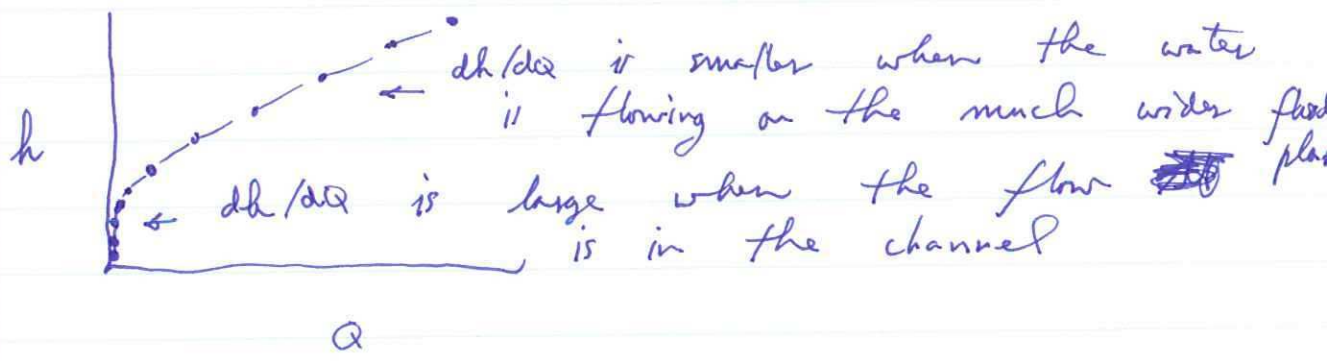 dh/dQ is smaller when the water
is flowing on the much wider flood
plain
h
dh/dQ is large when the flow
is in the channel
Q